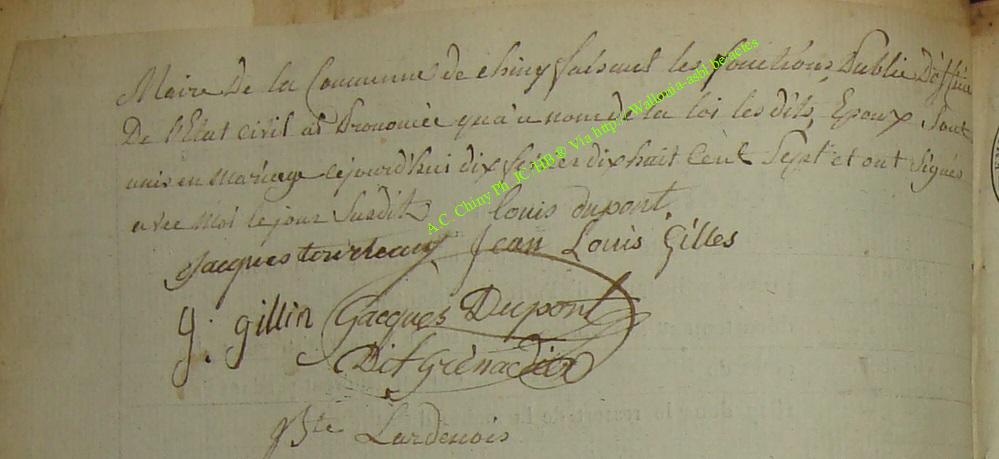 Maire De la Commune de chiny faisant les fonctions Public D'officie
De l'Etat civil at Prononcée qu'a u nom de la loi les dits, Epoux Sont
unis en mariage cejourd'hui dix fevrier dix huit Cent Sept et ont Signés
avec moi le jour Susdit louis dupont
Jacques tourteaux Jean Louis Gilles
g: gillin Jacques Dupont
Dit Grénadier
JBte Lardenois
A.C. Chiny Ph. JC HB @ Via http://Wallonia-asbl.be/actes